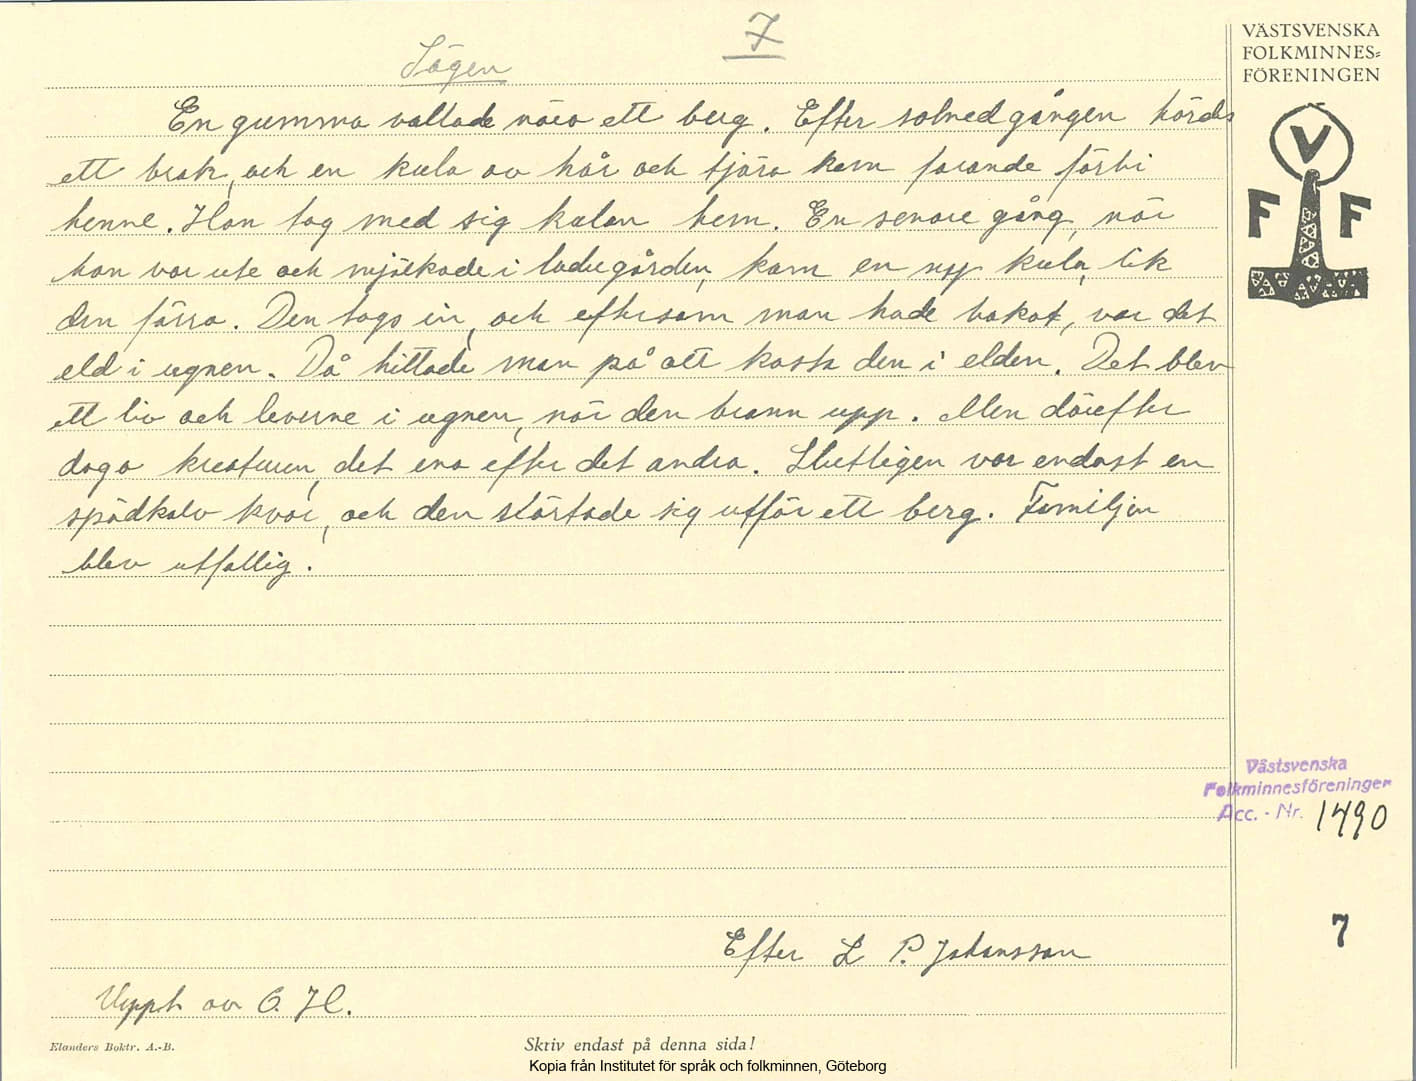 7
Sägen
VÄSTSVENSKA
FOLKMINNES=
FÖRENINGEN
V
F F
En gumma vallade nära ett berg. Efter solnedgången hördes
ett brak, och en kula av hår och tjära kom farande förbi
henne. Hon tog med sig kulan hem. En senare gång, när
hon var ute och mjölkade i ladugården, kom en ny kula, lik
den förra. Den togs in, och eftersom man hade bakat, var det
eld i ugnen. Då hittade man på att kasta den i elden. Det blev
ett liv och leverne i ugnen, när den brann upp. Men därefter
dogo kreaturen, det ena efter det andra. Slutligen var endast en
spädkalv kvar, och den störtade sig utför ett berg. Familjen
blev utfattig.
Västsvenska
Folkminnesföreningen
Acc. - Nr. 1490
7
Efter L P. Johansson
Uppt av O. H.
Elanders Boktr. A.-B.
Skriv endast på denna sida!
Kopia från Institutet för språk och folkminnen, Göteborg